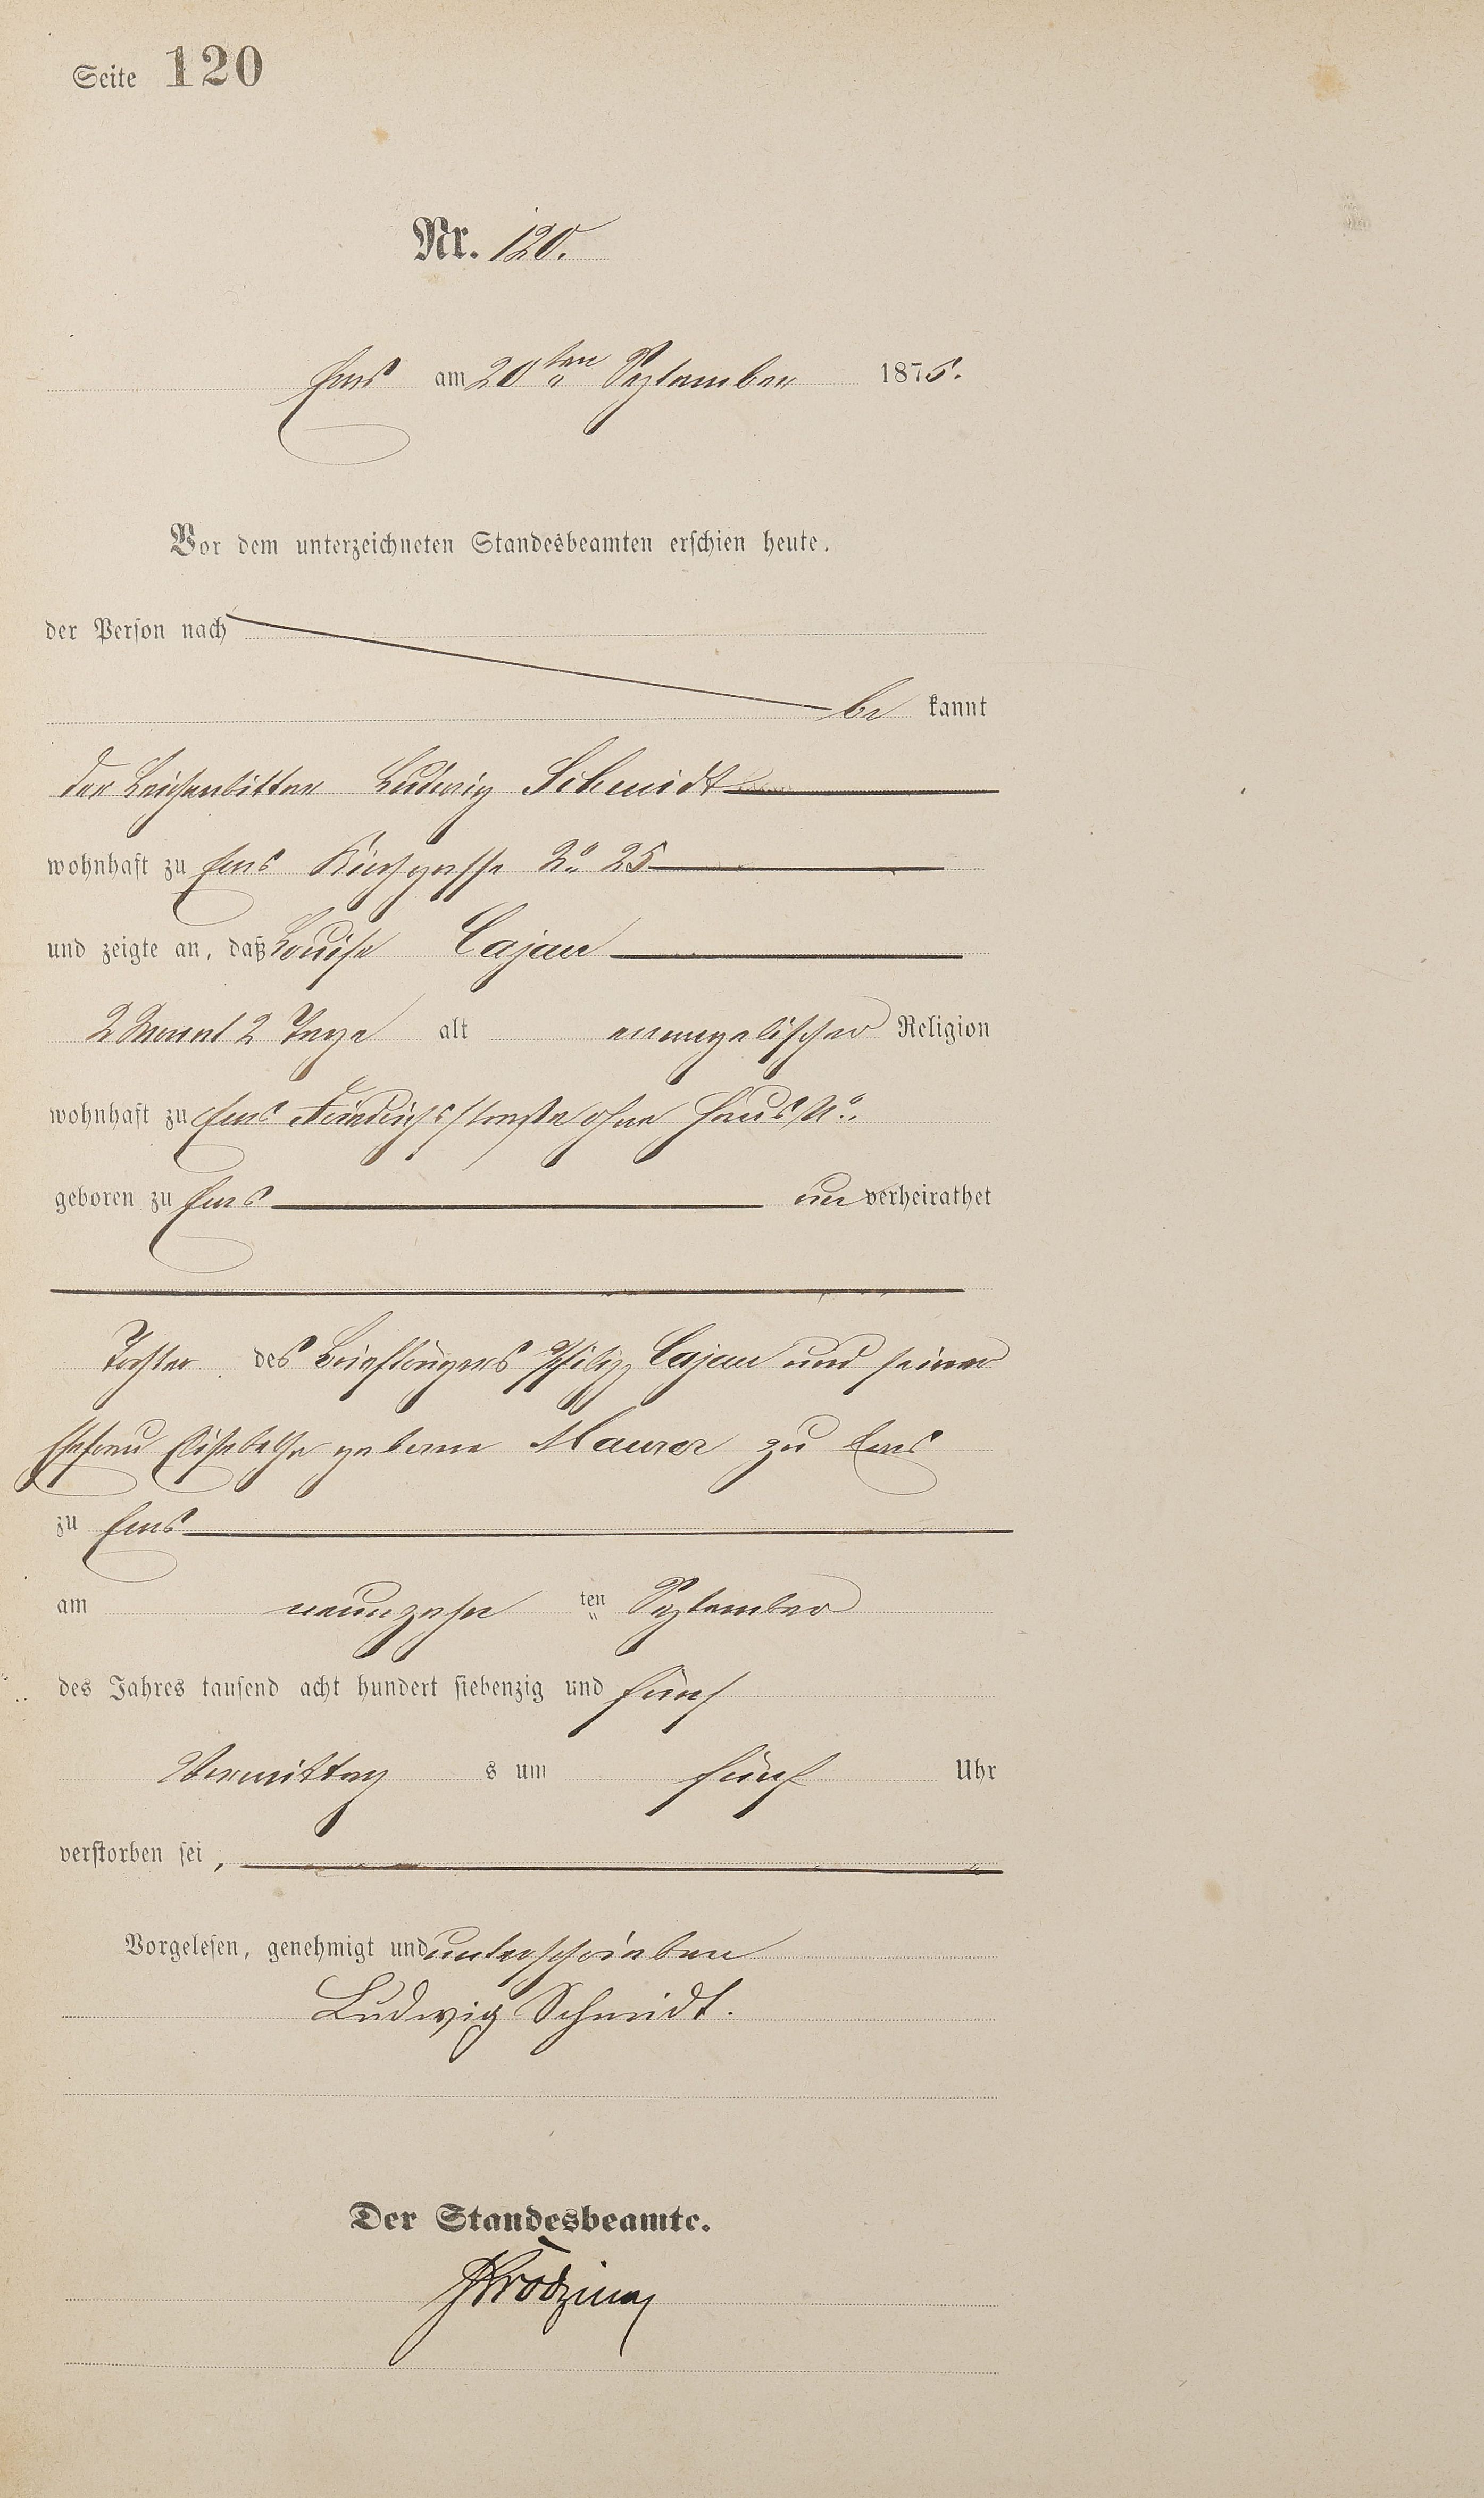 Seite 120
Nr. 120.
Ems am 20ten September 1875.
Vor dem unterzeichneten Standesbeamten erschien heute,
der Person nach
be kannt
der Leichenbitter Ludwig Schmidt
wohnhaft zu Ems Kirchgasse No 25
und zeigte an, daß Louise Cajau
2 Monat 2 Tage alt evangelischer Religion
wohnhaft zu Ems Friedrichsstraße ohne Haus No.
geboren zu Ems un verheirathet
Tochter des Briefträgers Philipp Cajau und seiner
Ehefrau Elisabethe geborne Maurer zu Ems
zu Ems
am neunzehn ten September
des Jahres tausend acht hundert siebenzig und fünf
Vormittag s um fünf Uhr
verstorben sei,
Vorgelesen, genehmigt und unterschrieben
Ludwig Schmidt.
Der Standesbeamte.